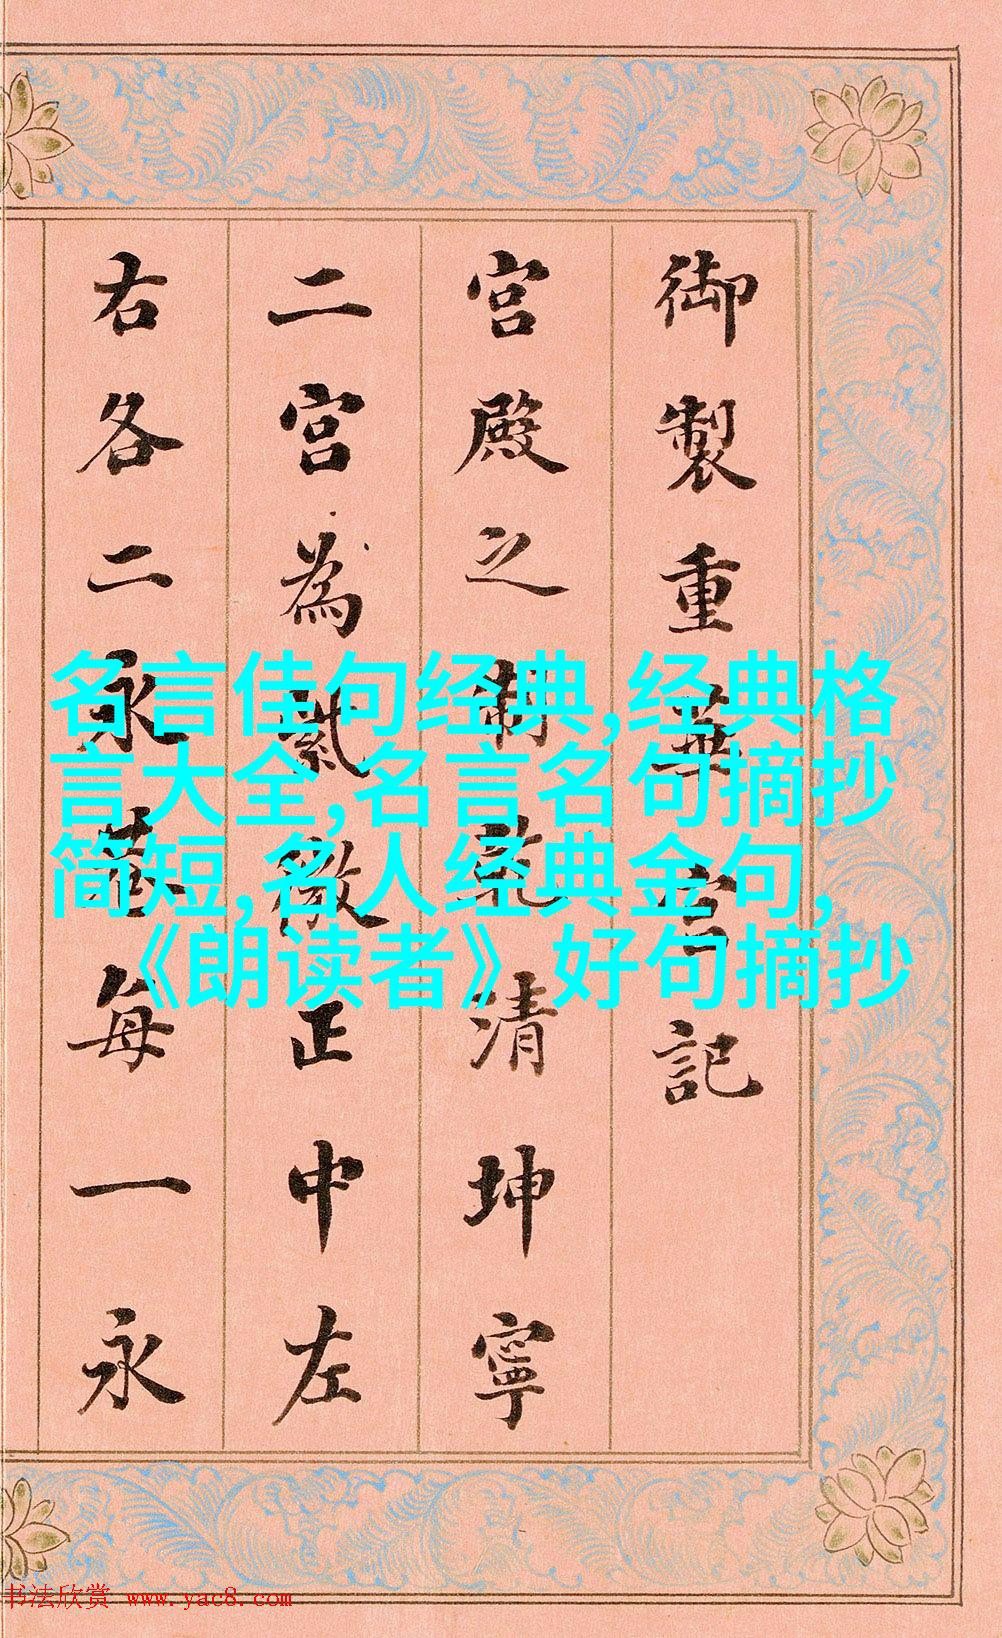 御製重華宮記
宮殿之制乾清坤寧
二宮為紫微正中左
右各二永巷每一永
名言佳句经典,经典格
言大全,名言名句摘抄
简短,名人经典金句,
《朗读者》好句摘抄
书法欣赏 www.yac8.com